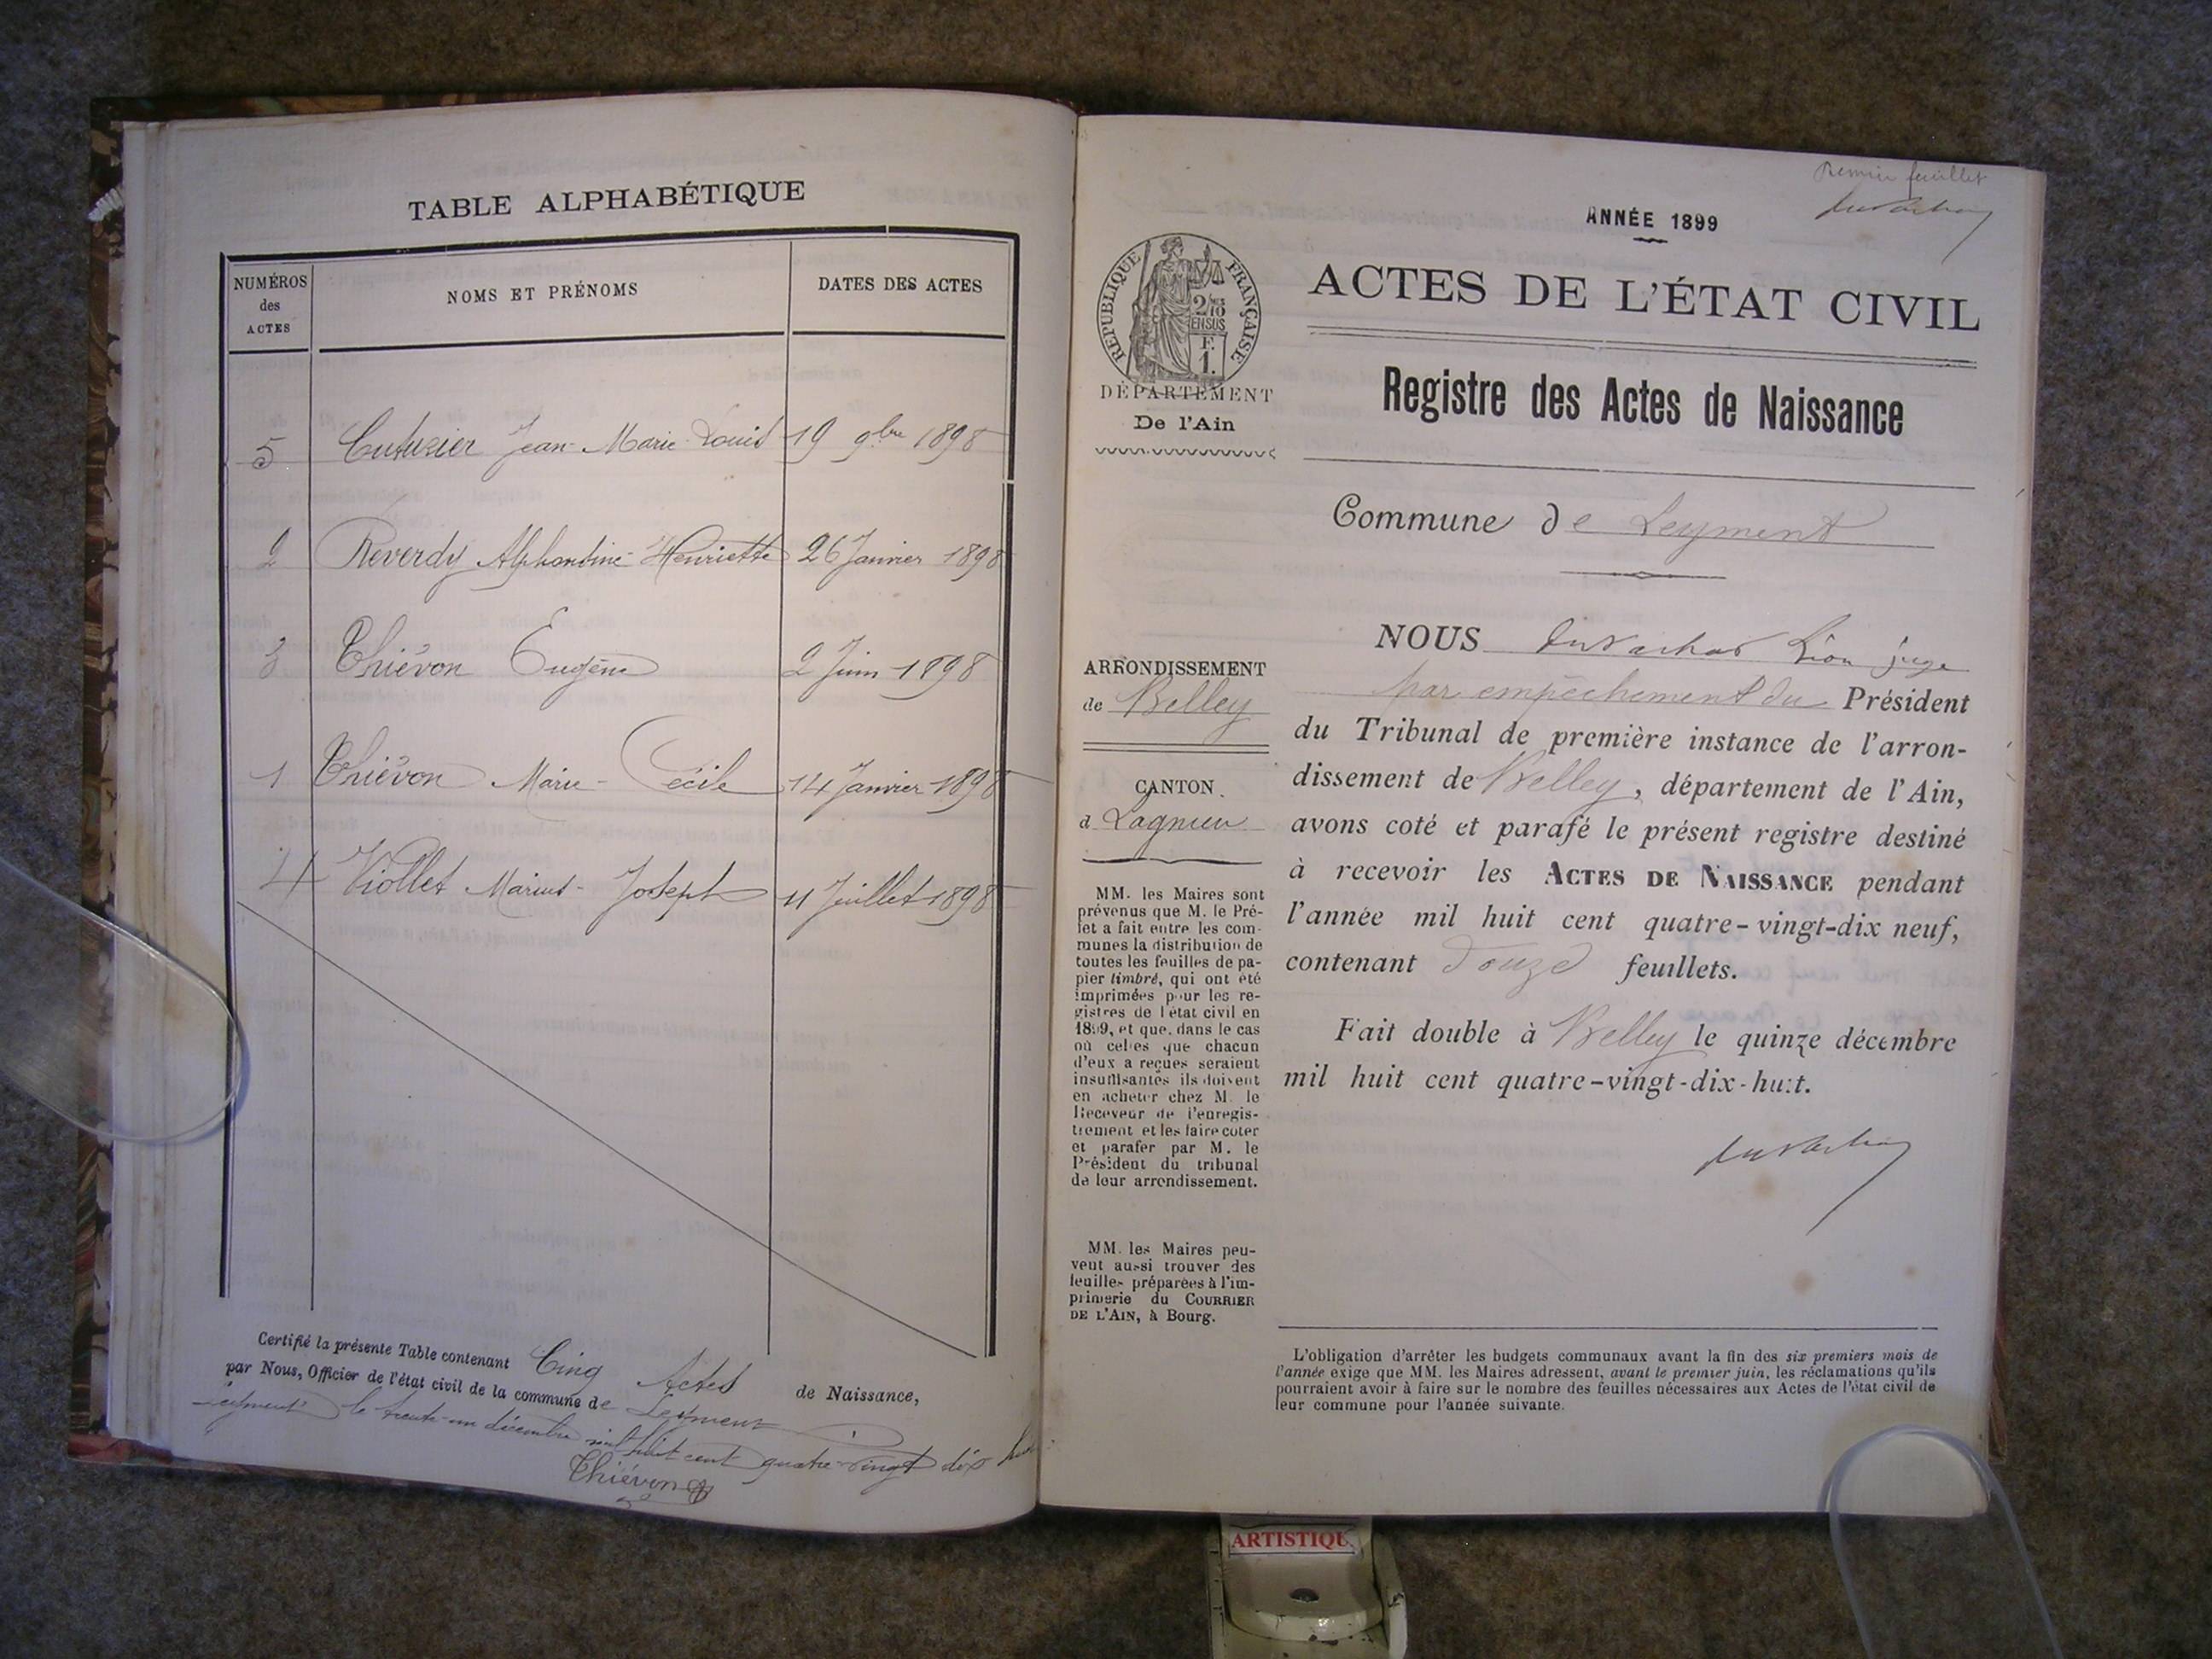 TABLE ALPHABÉTIQUE
NUMÉROS des ACTES
NOMS ET PRÉNOMS
DATES DES ACTES
5 Cutuzier Jean-Marie Louis 19 9bre 1898
2 Reverdy Alphonsine-Henriette 26 Janvier 1898
3 Thiévon Eugène 2 Juin 1898
1 Thiévon Marie-Cécile 14 Janvier 1898
4 Viollet Marius-Joseph 11 Juillet 1898
Certifié la présente Table contenant Cinq Actes de Naissance,
par Nous, Officier de l'état civil de la commune de Leyment
Leyment le trente-un décembre mil huit cent quatre-vingt dix huit
Thiévon
Premier feuillet
ANNÉE 1899
RÉPUBLIQUE FRANÇAISE
2/10 EN SUS
F. 1.
DÉPARTEMENT
De l'Ain
ACTES DE L'ÉTAT CIVIL
Registre des Actes de Naissance
Commune de Leyment
ARRONDISSEMENT
de Belley
CANTON
d Lagnieu
MM. les Maires sont
prévenus que M. le Pré-
fet a fait entre les com-
munes la distribution de
toutes les feuilles de pa-
pier timbré, qui ont été
imprimées pour les re-
gistres de l'état civil en
1899, et que, dans le cas
où celles que chacun
d'eux a reçues seraient
insuffisantes ils doivent
en acheter chez M. le
Receveur de l'enregis-
trement et les faire coter
et parafer par M. le
Président du tribunal
de leur arrondissement.
MM. les Maires peu-
vent aussi trouver des
feuilles préparées à l'im-
primerie du COURRIER
DE L'AIN, à Bourg.
NOUS Léon juge
par empêchement du Président
du Tribunal de première instance de l'arron-
dissement de Belley, département de l'Ain,
avons coté et parafé le présent registre destiné
à recevoir les ACTES DE NAISSANCE pendant
l'année mil huit cent quatre-vingt-dix neuf,
contenant Douze feuillets.
Fait double à Belley le quinze décembre
mil huit cent quatre-vingt-dix-huit.
L'obligation d'arrêter les budgets communaux avant la fin des six premiers mois de
l'année exige que MM. les Maires adressent, avant le premier juin, les réclamations qu'ils
pourraient avoir à faire sur le nombre des feuilles nécessaires aux Actes de l'état civil de
leur commune pour l'année suivante.
ARTISTIQUE